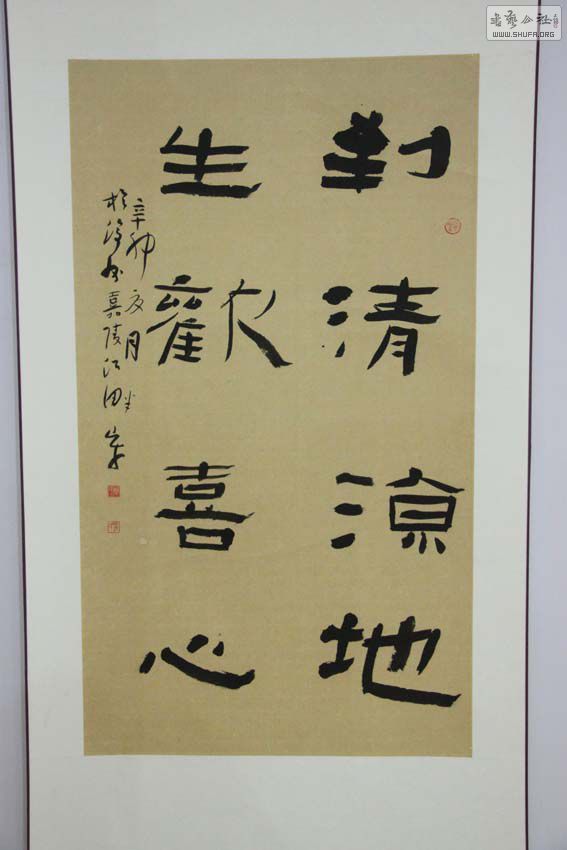 书艺公社
WWW.SHUFA.ORG
到清涼地
生歡喜心
辛卯夏月
嘉陵江畔